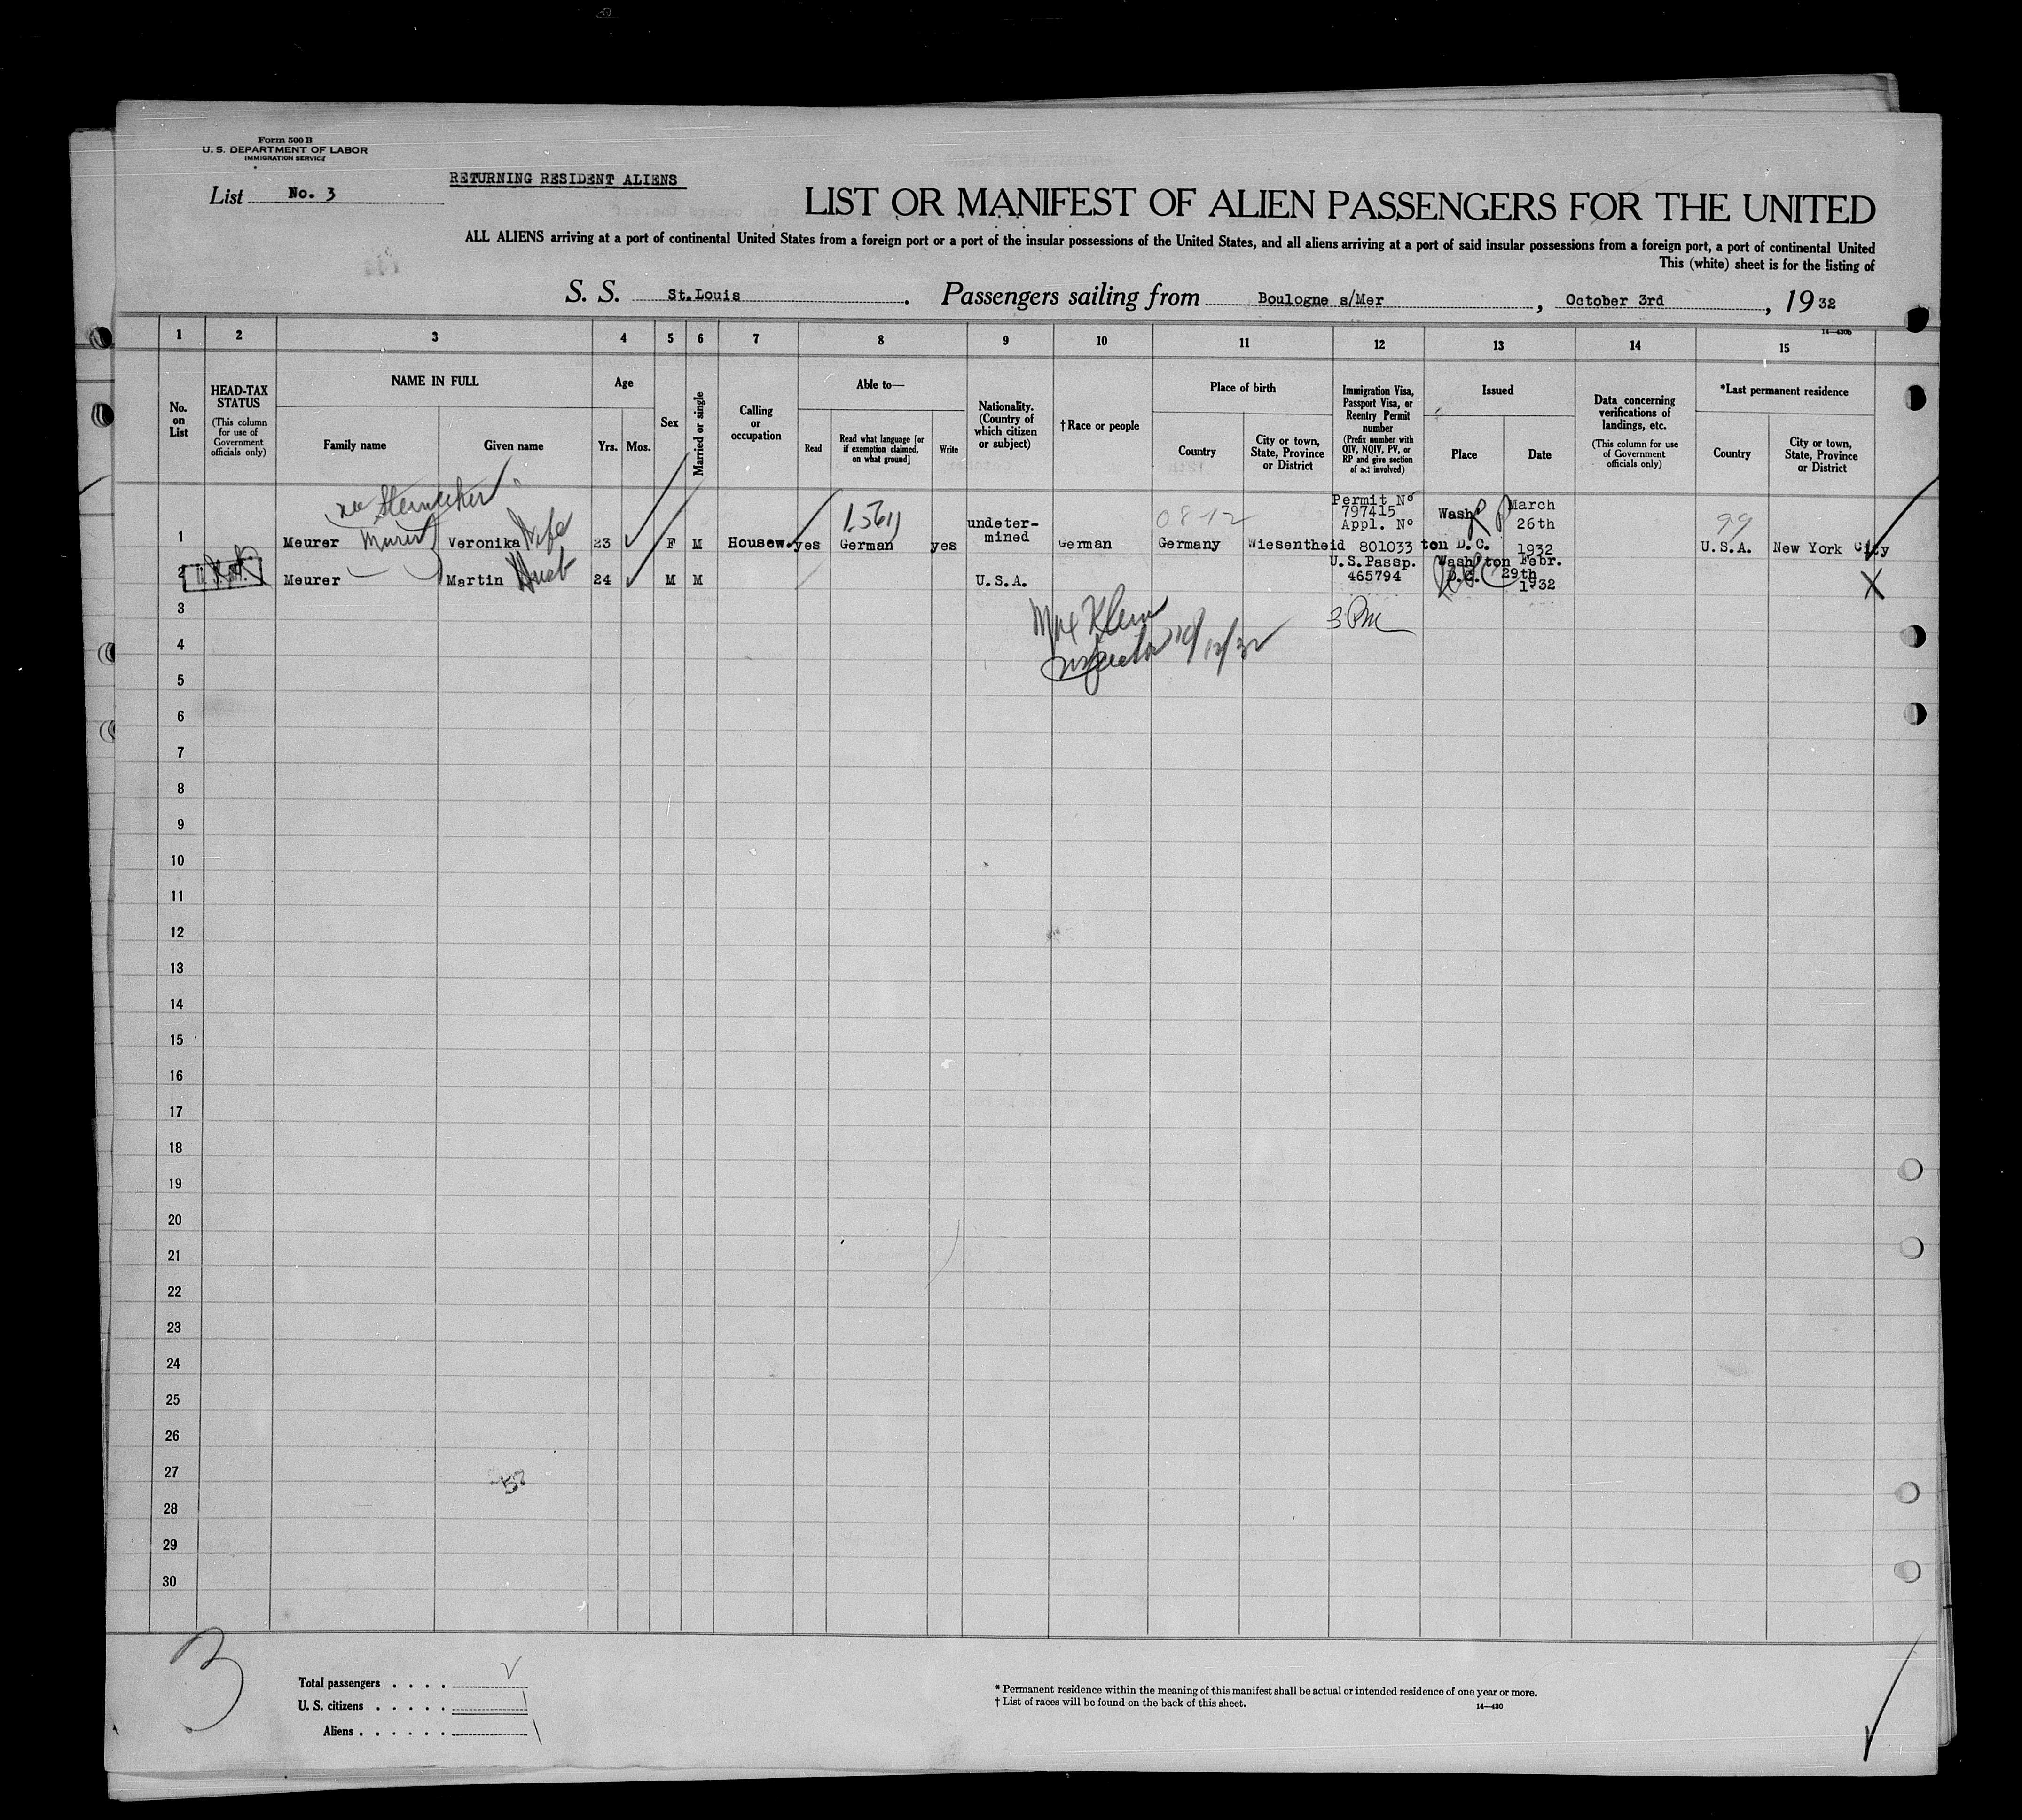 Form 500 B
U. S. DEPARTMENT OF LABOR
IMMIGRATION SERVICE
List No. 3
RETURNING RESIDENT ALIENS
LIST OR MANIFEST OF ALIEN PASSENGERS FOR THE UNITED
ALL ALIENS arriving at a port of continental United States from a foreign port or a port of the insular possessions of the United States, and all aliens arriving at a port of said insular possessions from a foreign port, a port of continental United
This (white) sheet is for the listing of
S. S. St.Louis. Passengers sailing from Boulogne s/Mer, October 3rd, 19 32
14—430b
1 2 3 4 5 6 7 8 9 10 11 12 13 14 15
No. on List
HEAD-TAX STATUS
(This column for use of Government officials only)
NAME IN FULL
Family name
Given name
Age
Yrs. Mos.
Sex
Married or single
Calling or occupation
Able to—
Read
Read what language [or if exemption claimed, on what ground]
Write
Nationality. (Country of which citizen or subject)
†Race or people
Place of birth
Country
City or town, State, Province or District
Immigration Visa, Passport Visa, or Reentry Permit number
(Prefix number with QIV, NQIV, PV, or RP and give section of act involved)
Issued
Place
Date
Data concerning verifications of landings, etc.
(This column for use of Government officials only)
*Last permanent residence
Country
City or town, State, Province or District
1 Meurer Veronika Wife 23 F M Housew. yes German yes undeter-mined German 08-12 Germany Wiesentheid Permit No 797415 Appl. No 801033 Washington D.C. March 26th 1932 99 U.S.A. New York City
2 Meurer Martin Husb 24 M M U.S.A. U.S.Passp. 465794 Washington D.C. Febr. 29th 1932 X
Max Klein
Inspector
3
4
5
6
7
8
9
10
11
12
13
14
15
16
17
18
19
20
21
22
23
24
25
26
27
28
29
30
3
Total passengers . . . .
U. S. citizens . . . . . 1
Aliens . . . . . . 1
* Permanent residence within the meaning of this manifest shall be actual or intended residence of one year or more.
† List of races will be found on the back of this sheet.
14—430